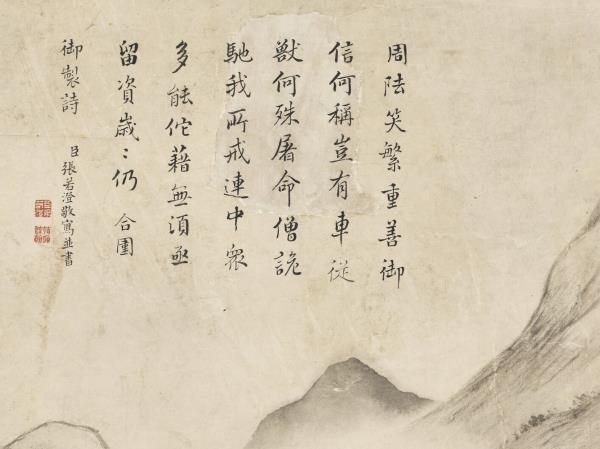 周陸笑繁重善御
信何稱豈有車從
獸何殊屠命僧詭
馳我所戒連中眾
多能佗藉無須亟
留資歲〻仍合圍
御製詩
臣張若澄敬寫並書